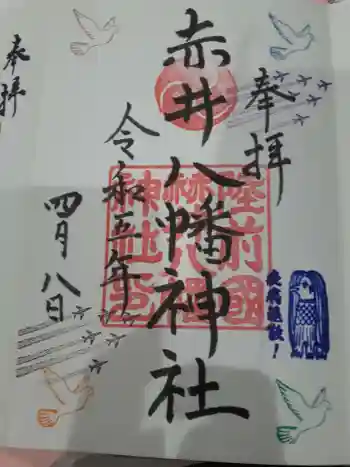 奉拝
赤井八幡神社
令和五年
四月八日
奉拝
疫病退散!
陸前國
神社